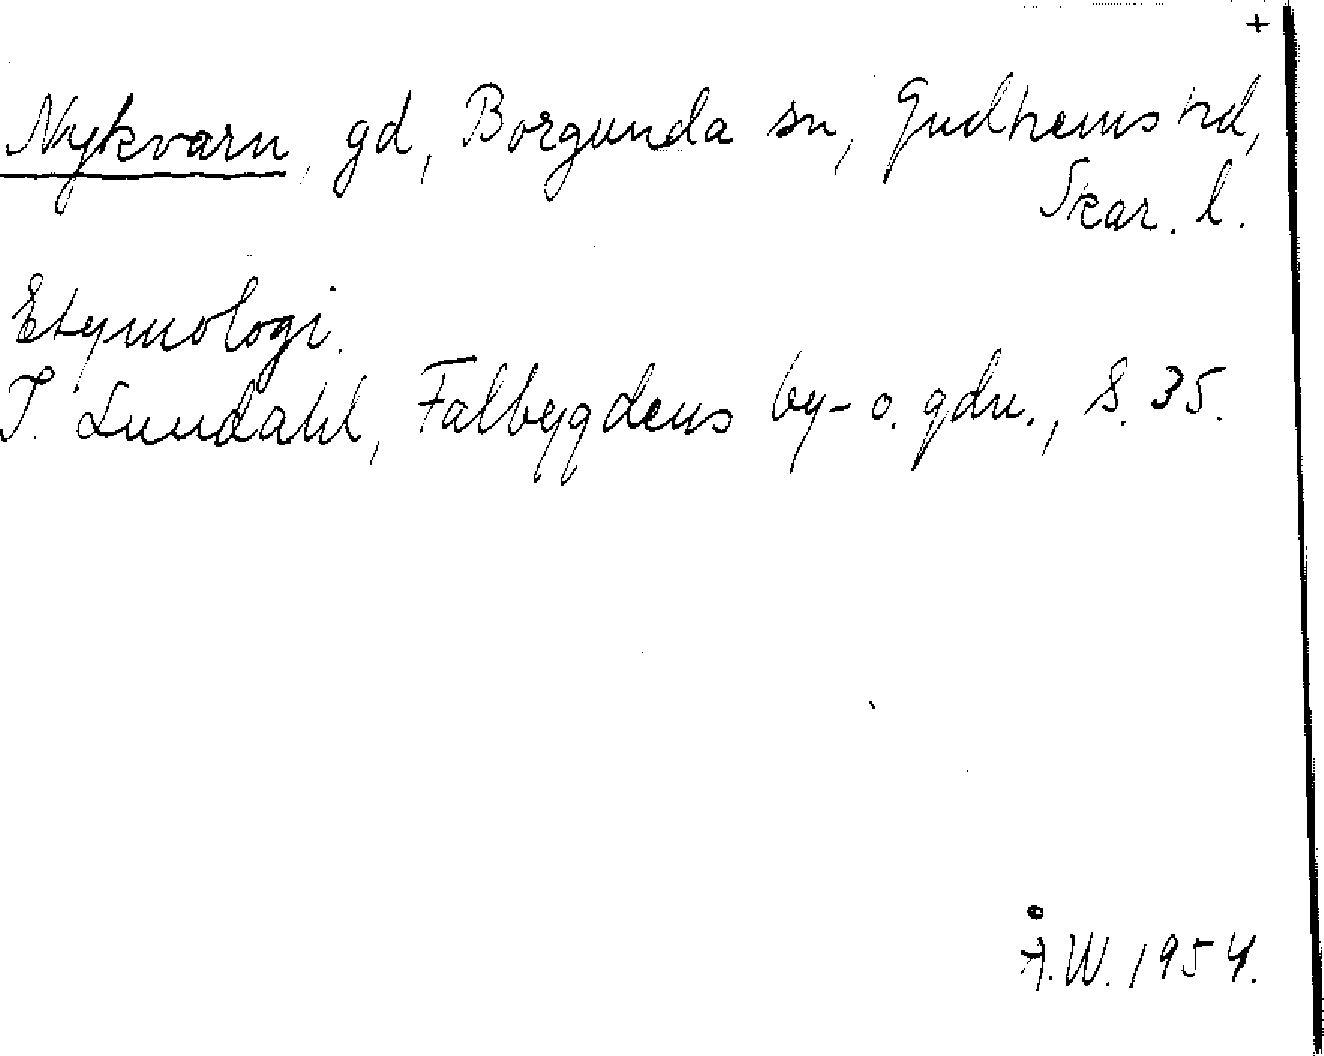 +
Nykvarn, gd, Borgunda sn, Gudhems hd,
Skar. l.
Etymologi.
I. Lundahl, Falbygdens by- o. gdn., S. 35.
Å.W. 1954.